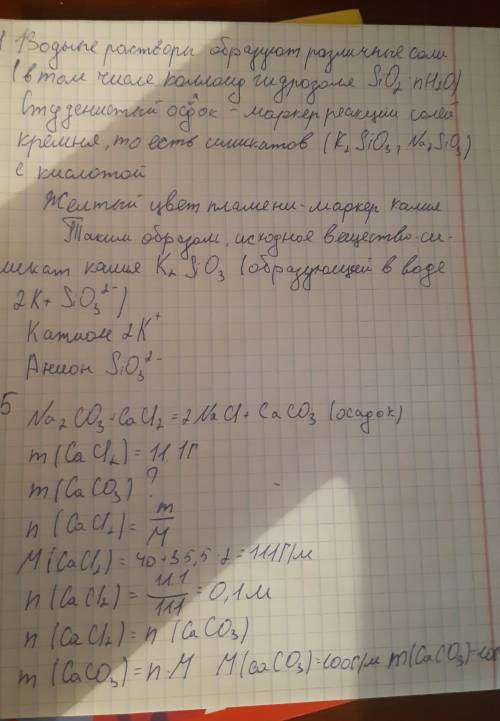 1 Водные растворы образуют различные соли
(в том числе коллоид гидрозоля SiO₂ nH₂O)
Студенистый осадок - маркер реакции солей
кремния, то есть силикатов (K₂SiO₃, Na₂SiO₃)
с кислотой
Желтый цвет пламени - маркер калия
Таким образом, исходное вещество - си-
ликат калия K₂SiO₃ (образующий в воде
2K + SiO₃²⁻)
Катион 2K⁺
Анион SiO₃²⁻
5
Na₂CO₃ + CaCl₂ = 2NaCl + CaCO₃ (осадок)
m(CaCl₂) = 11.1г
m(CaCO₃) ?
n(CaCl₂) = m/M
M(CaCl₂) = 40+35,5·2 = 111г/м
n(CaCl₂) = 11.1/111 = 0,1м
n(CaCl₂) = n(CaCO₃)
m(CaCO₃) = n·M M(CaCO₃) = 100г/м m(CaCO₃) =